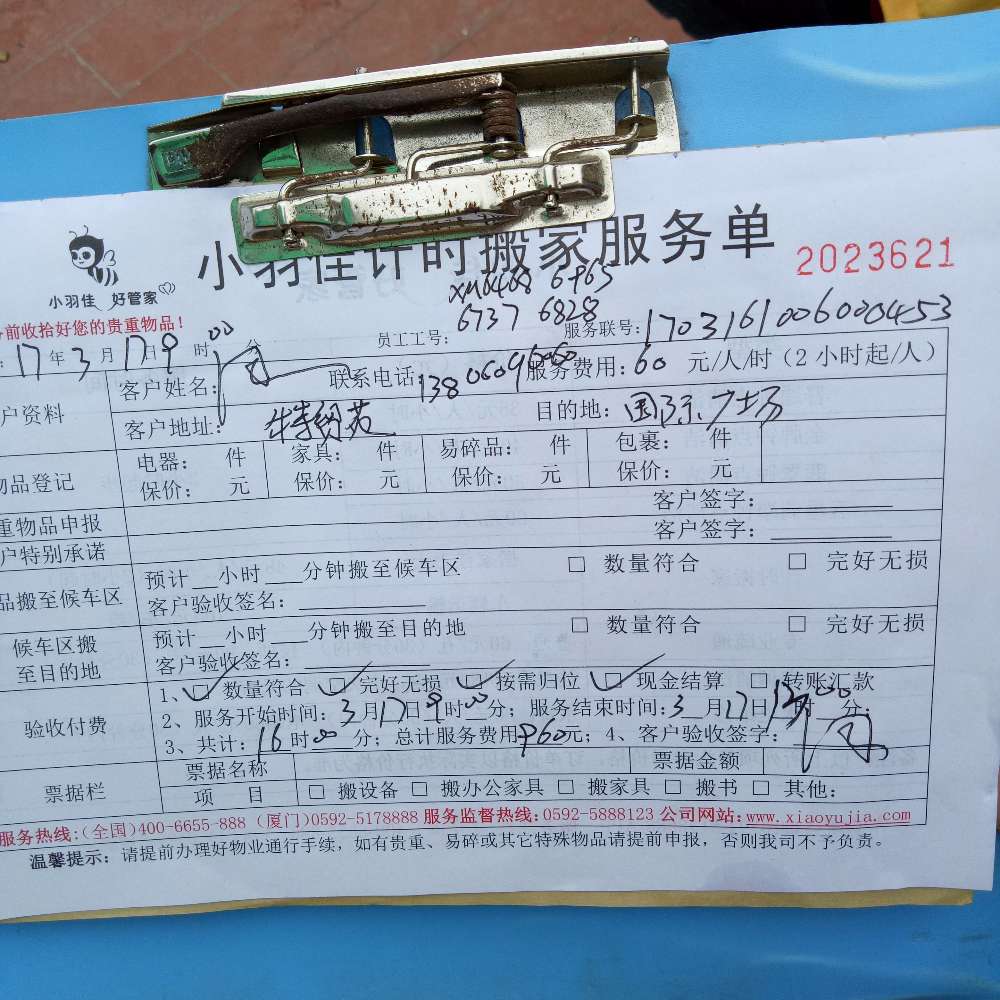 小羽佳计时搬家服务单
小羽佳 好管家
2023621
前收拾好您的贵重物品！
员工工号：
6737 6828
服务联号：1703161006000453
17年3月17日9时00分
户资料 客户姓名： 联系电话： 服务费用：60 元/人/时（2小时起/人）
客户地址： 目的地：国际广场
物品登记 电器： 件 家具： 件 易碎品： 件 包裹： 件
保价： 元 保价： 元 保价： 元 保价： 元
重物品申报 客户签字：
户特别承诺 客户签字：
品搬至候车区 预计 小时 分钟搬至候车区 □ 数量符合 □ 完好无损
客户验收签名：
候车区搬至目的地 预计 小时 分钟搬至目的地 □ 数量符合 □ 完好无损
客户验收签名：
验收付费 1、☑ 数量符合 ☑ 完好无损 ☑ 按需归位 ☑ 现金结算 □ 转账汇款
2、服务开始时间：3月17日9时00分；服务结束时间：3月17日13时00分；
3、共计：16时00分；总计服务费用960元；4、客户验收签字：
票据栏 票据名称 票据金额
项 目 □ 搬设备 □ 搬办公家具 □ 搬家具 □ 搬书 □ 其他：
服务热线：（全国）400-6655-888（厦门）0592-5178888 服务监督热线：0592-5888123 公司网站：www.xiaoyujia.com
温馨提示：请提前办理好物业通行手续，如有贵重、易碎或其它特殊物品请提前申报，否则我司不予负责。